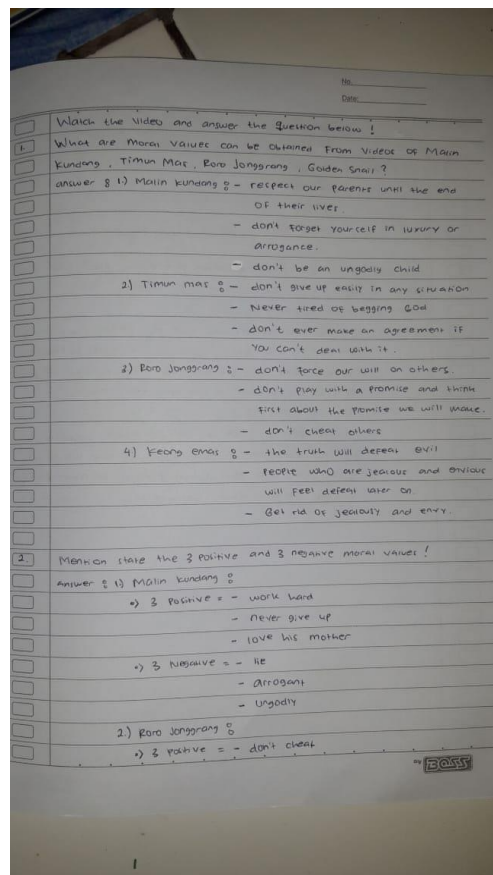 No.
Date:
Watch the video and answer the question below !
1. What are moral values can be obtained from videos of Malin
Kundang , Timun Mas , Roro Jonggrang , Golden Snail ?
answer : 1.) Malin Kundang : - respect our parents until the end
of their lives.
- don't forget yourself in luxury or
arrogance.
- don't be an ungodly child
2) Timun mas : - don't give up easily in any situation
- Never tired of begging God
- don't ever make an agreement if
you can't deal with it.
3) Roro Jonggrang : - don't force our will on others.
- don't play with a promise and think
first about the promise we will make.
- don't cheat others
4) Keong emas : - the truth will defeat evil
- people who are jealous and envious
will feel defeat later on
- Get rid of jealousy and envy.
2. Mention state the 3 positive and 3 negative moral values !
answer : 1) Malin Kundang :
•) 3 Positive = - work hard
- never give up
- love his mother
•) 3 Negative = - lie
- arrogant
- ungodly
2.) Roro Jonggrang :
•) 3 positive = - don't cheat
by BOSS